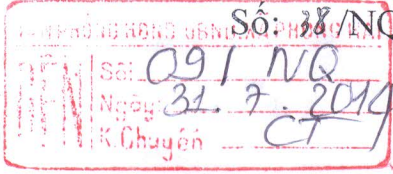 Số: 38/NQ
ĐẾN
Số: 091 NQ
Ngày: 31.7.2014
K.Chuyển CT